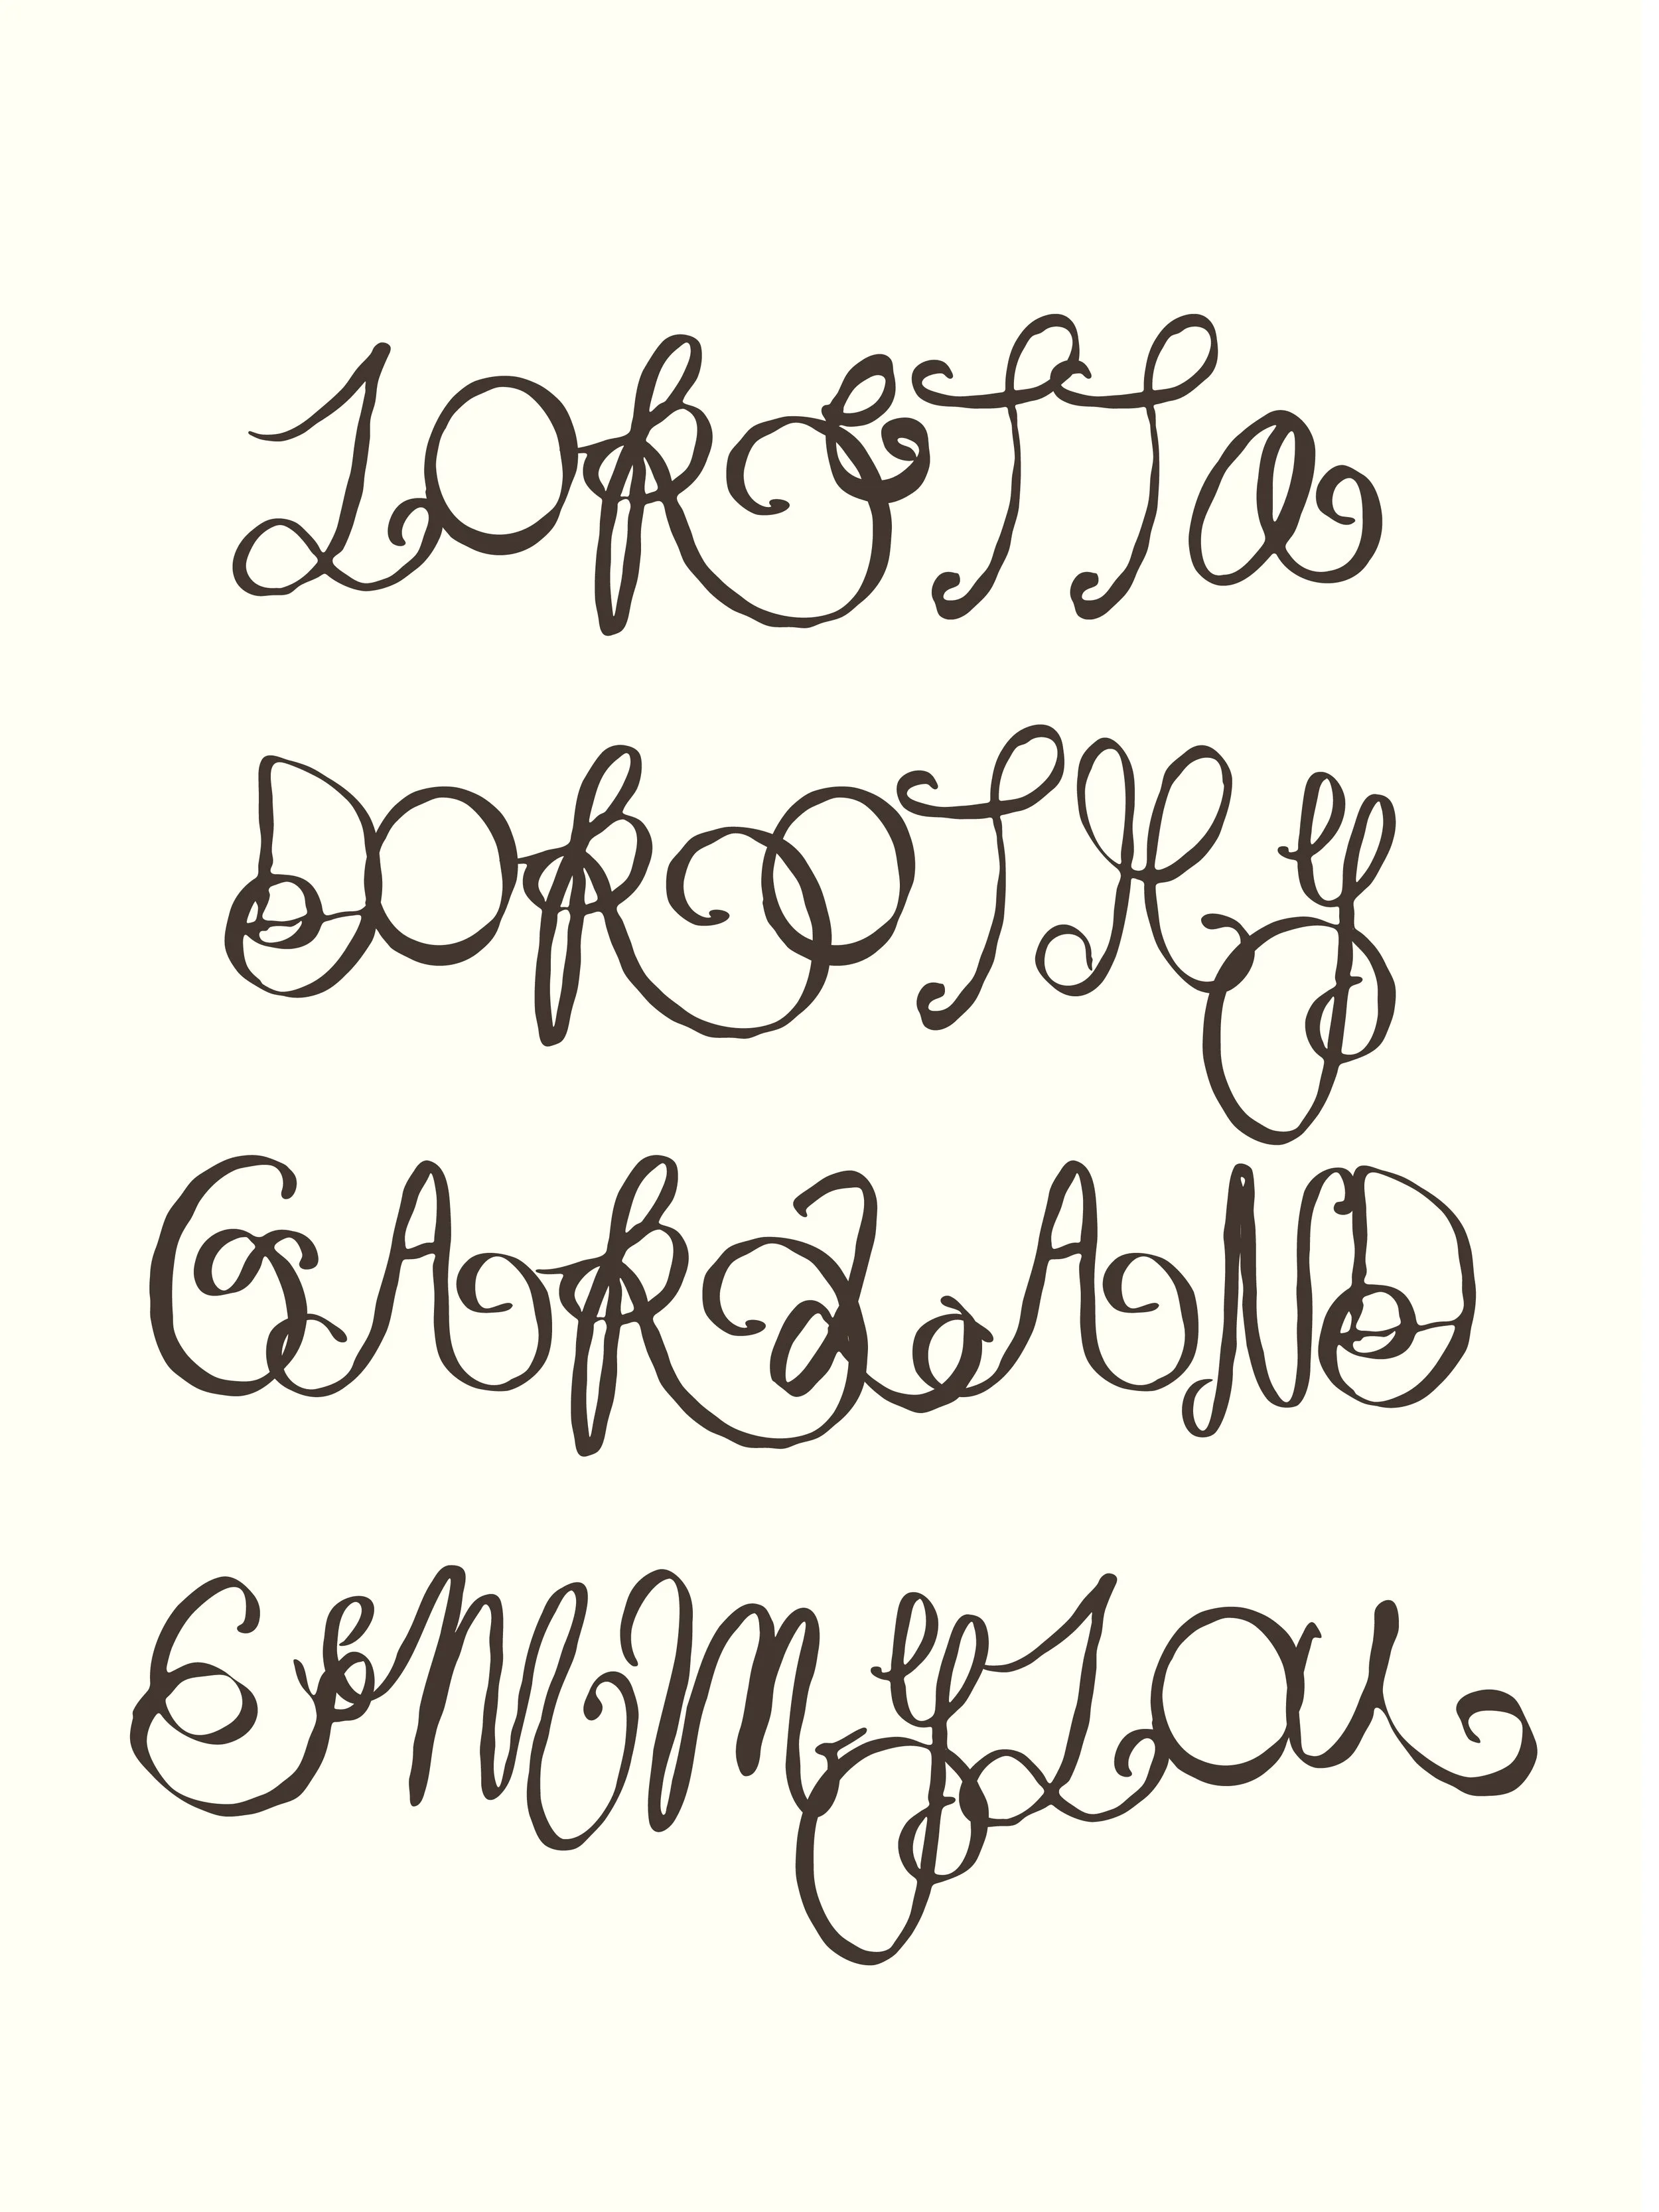 Loretta
Dorothy
Garland
Emmylou